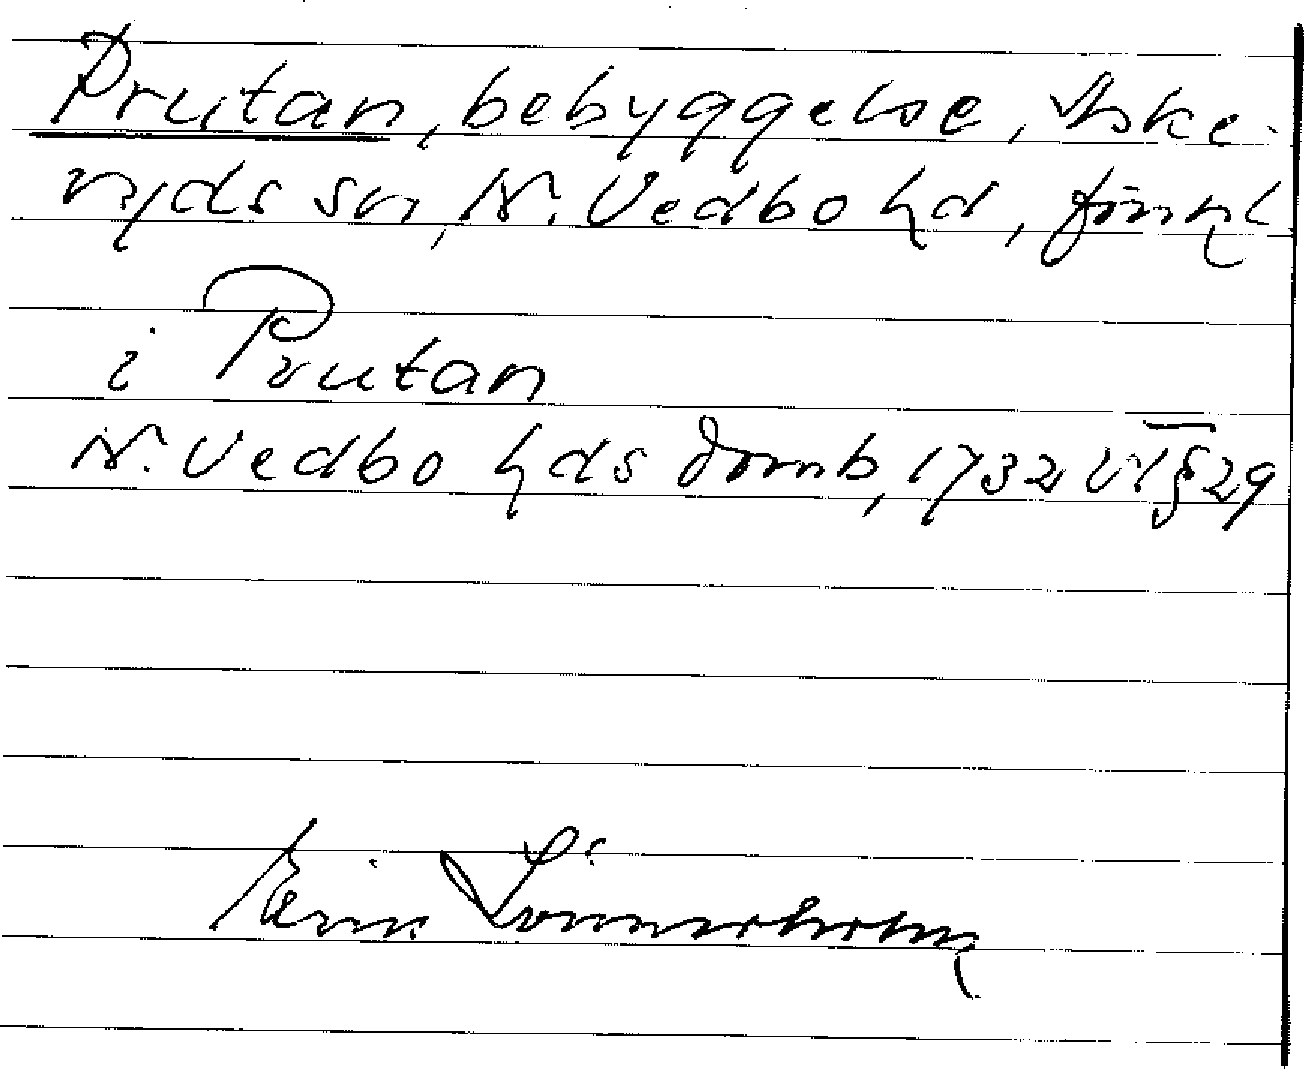 Prutan, bebyggelse, Aske-
ryds sn, N. Vedbo hd, Jönk l
i Prutan
N. Vedbo hds domb, 1732 VT § 29
Lönnerholm